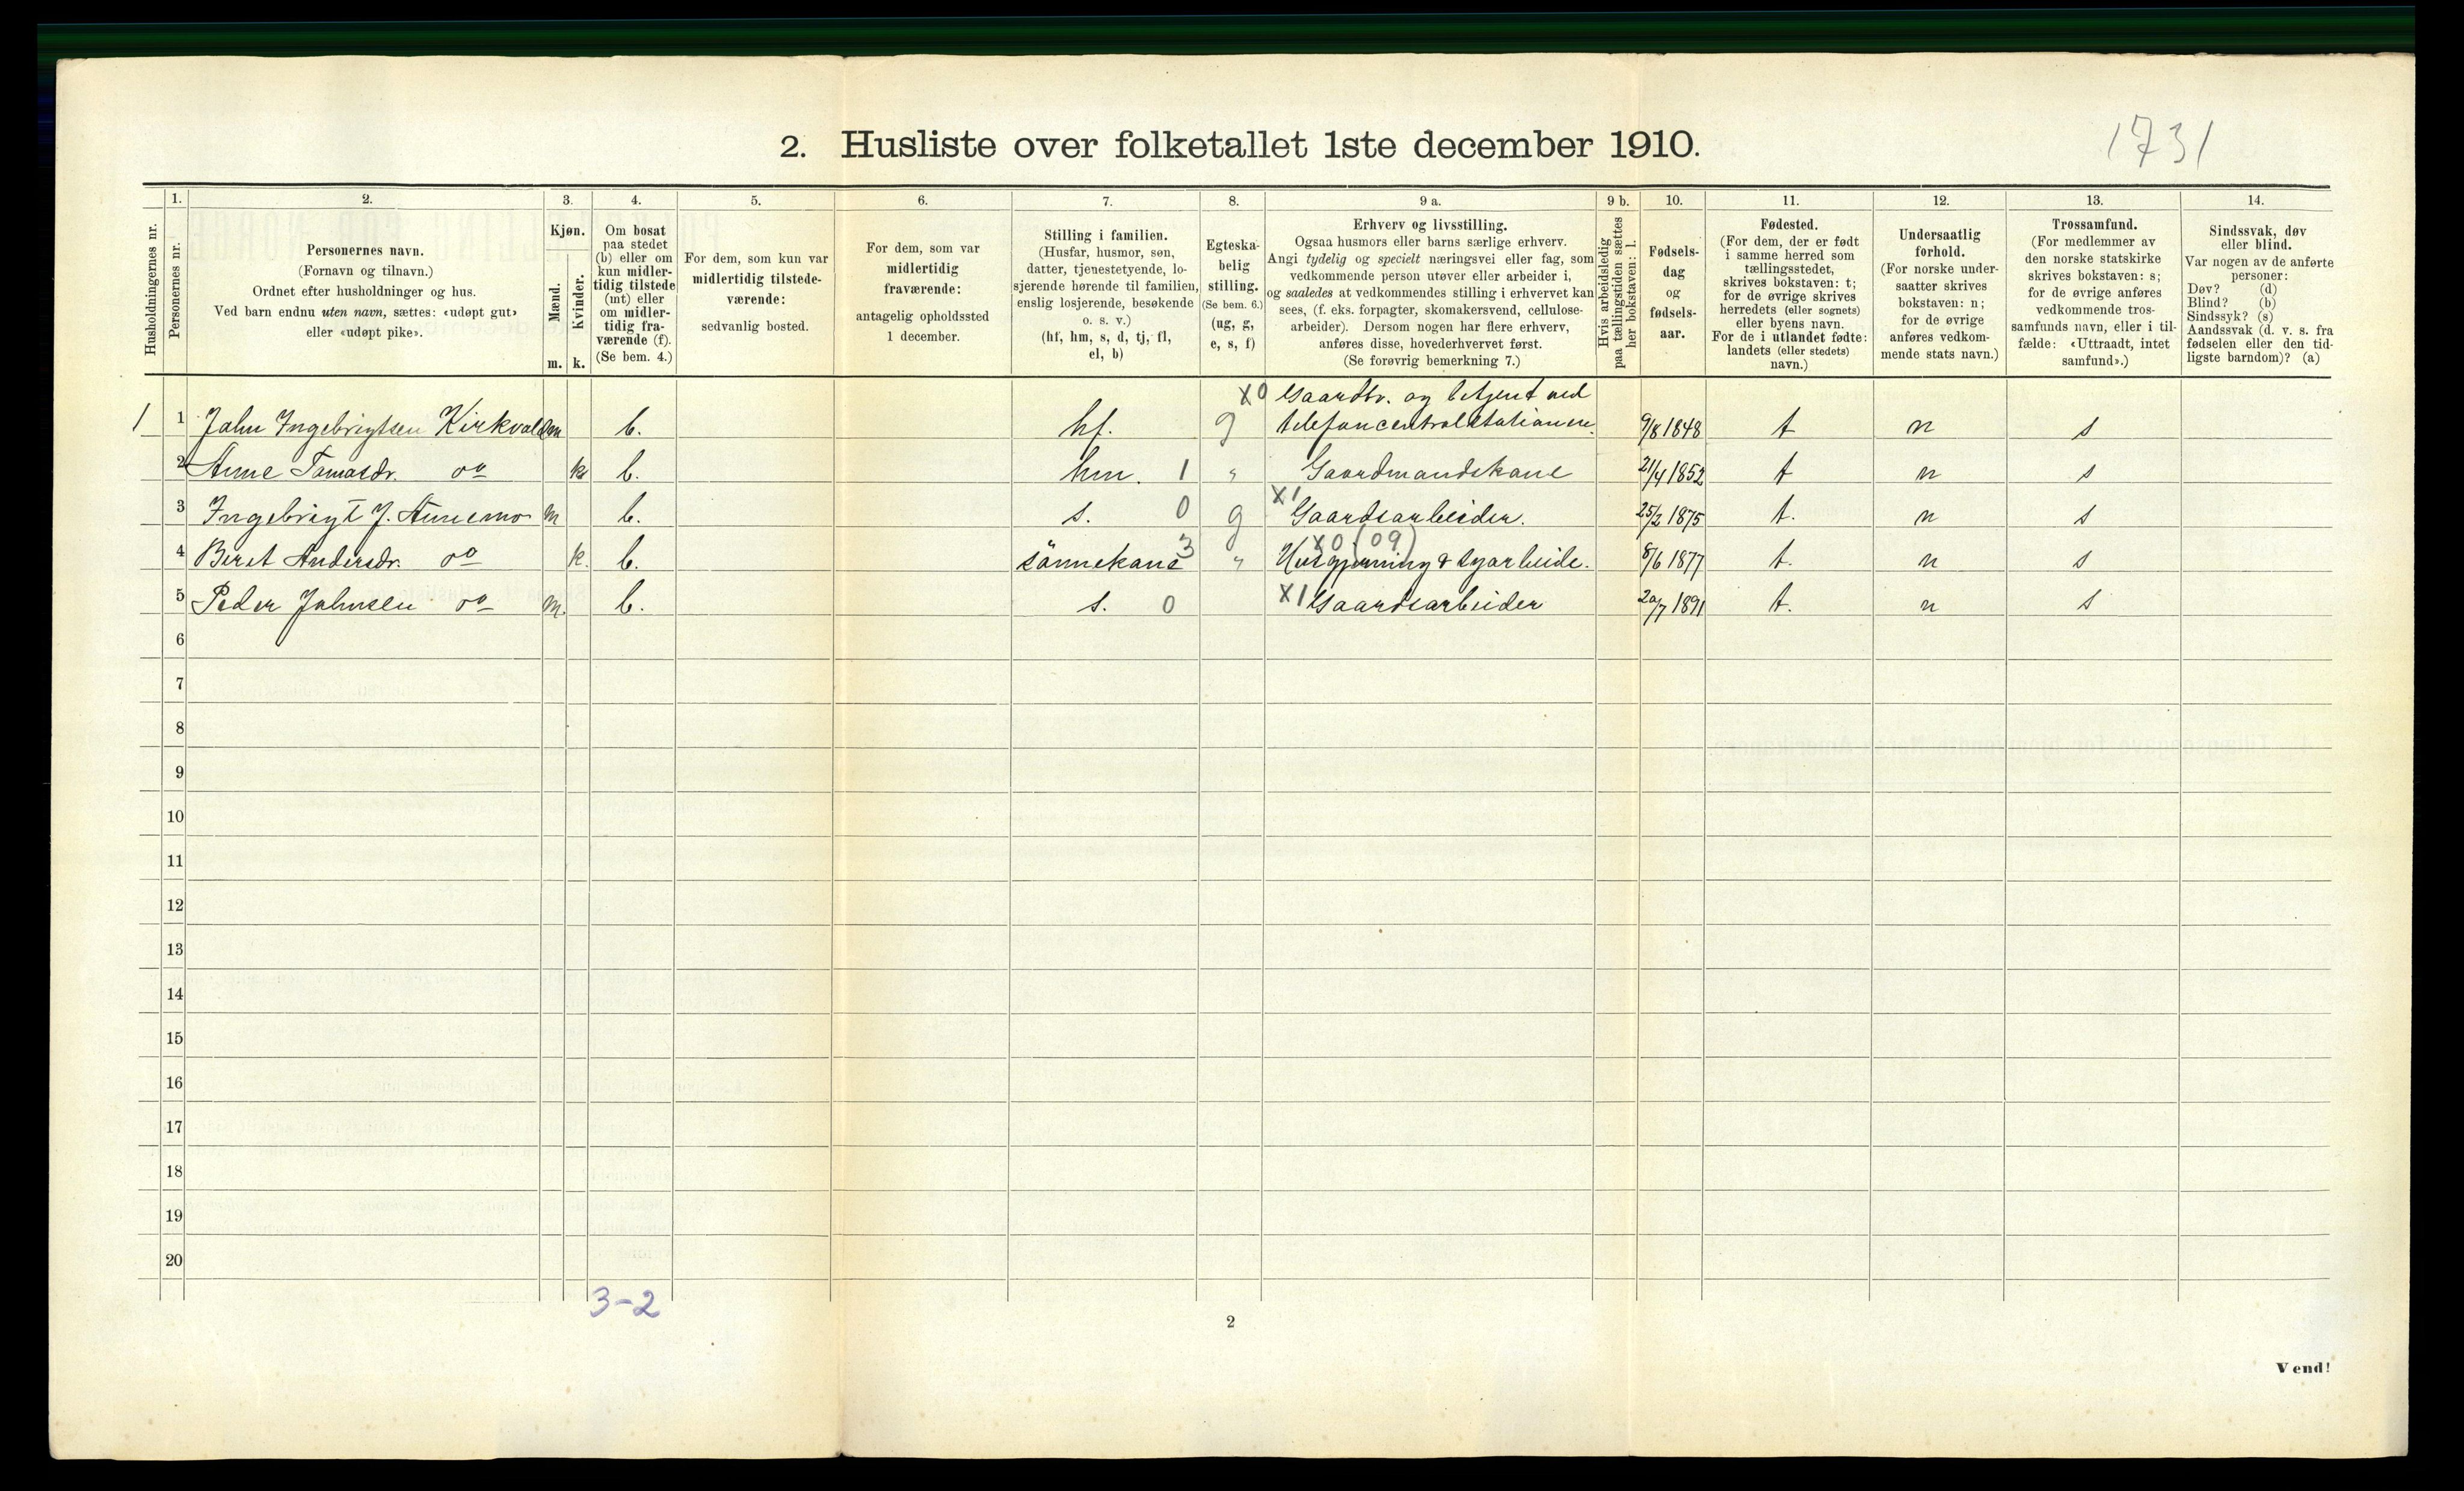 1731
2. Husliste over folketallet 1ste december 1910.
Husholdningernes nr.
1.
Personernes nr.
2.
Personernes navn.
(Fornavn og tilnavn.)
Ordnet efter husholdninger og hus.
Ved barn endnu uten navn, sættes: «udøpt gut»
eller «udøpt pike».
3.
Kjøn.
Mænd.
Kvinder.
m. k.
4.
Om bosat
paa stedet
(b) eller om
kun midler-
tidig tilstede
(mt) eller
om midler-
tidig fra-
værende (f).
(Se bem. 4.)
5.
For dem, som kun var
midlertidig tilstede-
værende:
sedvanlig bosted.
6.
For dem, som var
midlertidig
fraværende:
antagelig opholdssted
1 december.
7.
Stilling i familien.
(Husfar, husmor, søn,
datter, tjenestetyende, lo-
sjerende hørende til familien,
enslig losjerende, besøkende
o. s. v.)
(hf, hm, s, d, tj, fl,
el, b)
8.
Egteska-
belig
stilling.
(Se bem. 6.)
(ug, g,
e, s, f)
9 a.
Erhverv og livsstilling.
Ogsaa husmors eller barns særlige erhverv.
Angi tydelig og specielt næringsvei eller fag, som
vedkommende person utøver eller arbeider i,
og saaledes at vedkommendes stilling i erhvervet kan
sees, (f. eks. forpagter, skomakersvend, cellulose-
arbeider). Dersom nogen har flere erhverv,
anføres disse, hovederhvervet først.
(Se forøvrig bemerkning 7.)
9 b.
Hvis arbeidsledig
paa tællingstiden sættes
her bokstaven: l.
10.
Fødsels-
dag
og
fødsels-
aar.
11.
Fødested.
(For dem, der er født
i samme herred som
tællingsstedet,
skrives bokstaven: t;
for de øvrige skrives
herredets (eller sognets)
eller byens navn.
For de i utlandet fødte:
landets (eller stedets)
navn.)
12.
Undersaatlig
forhold.
(For norske under-
saatter skrives
bokstaven: n;
for de øvrige
anføres vedkom-
mende stats navn.)
13.
Trossamfund.
(For medlemmer av
den norske statskirke
skrives bokstaven: s;
for de øvrige anføres
vedkommende tros-
samfunds navn, eller i til-
fælde: «Uttraadt, intet
samfund».)
14.
Sindssvak, døv
eller blind.
Var nogen av de anførte
personer:
Døv? (d)
Blind? (b)
Sindssyk? (s)
Aandssvak (d. v. s. fra
fødselen eller den tid-
ligste barndom)? (a)
X0 Gaardbr. og betjent ved
1 1 John Ingebrigtsen Kirkvold m b. hf. g telefoncentralstationen. 9/8 1848 t n s
2 Anne Tomasdr. do k b. hm. 1 " Gaardmandskone 21/4 1852 t n s
3 Ingebrigt J. Annemo m b. s. 0 g X1 Gaardsarbeider. 25/2 1875 t. n s
X0 (09)
4 Beret Andersdr. do k. b. sönnekone 3 " Husgjerning & syarbeide. 8/6 1877 t. n s
5 Peder Johnsen do m. b. s. 0 X1 Gaardsarbeider 20/7 1891 t. n s
6
7
8
9
10
11
12
13
14
15
16
17
18
19
20
3-2
2
Vend!